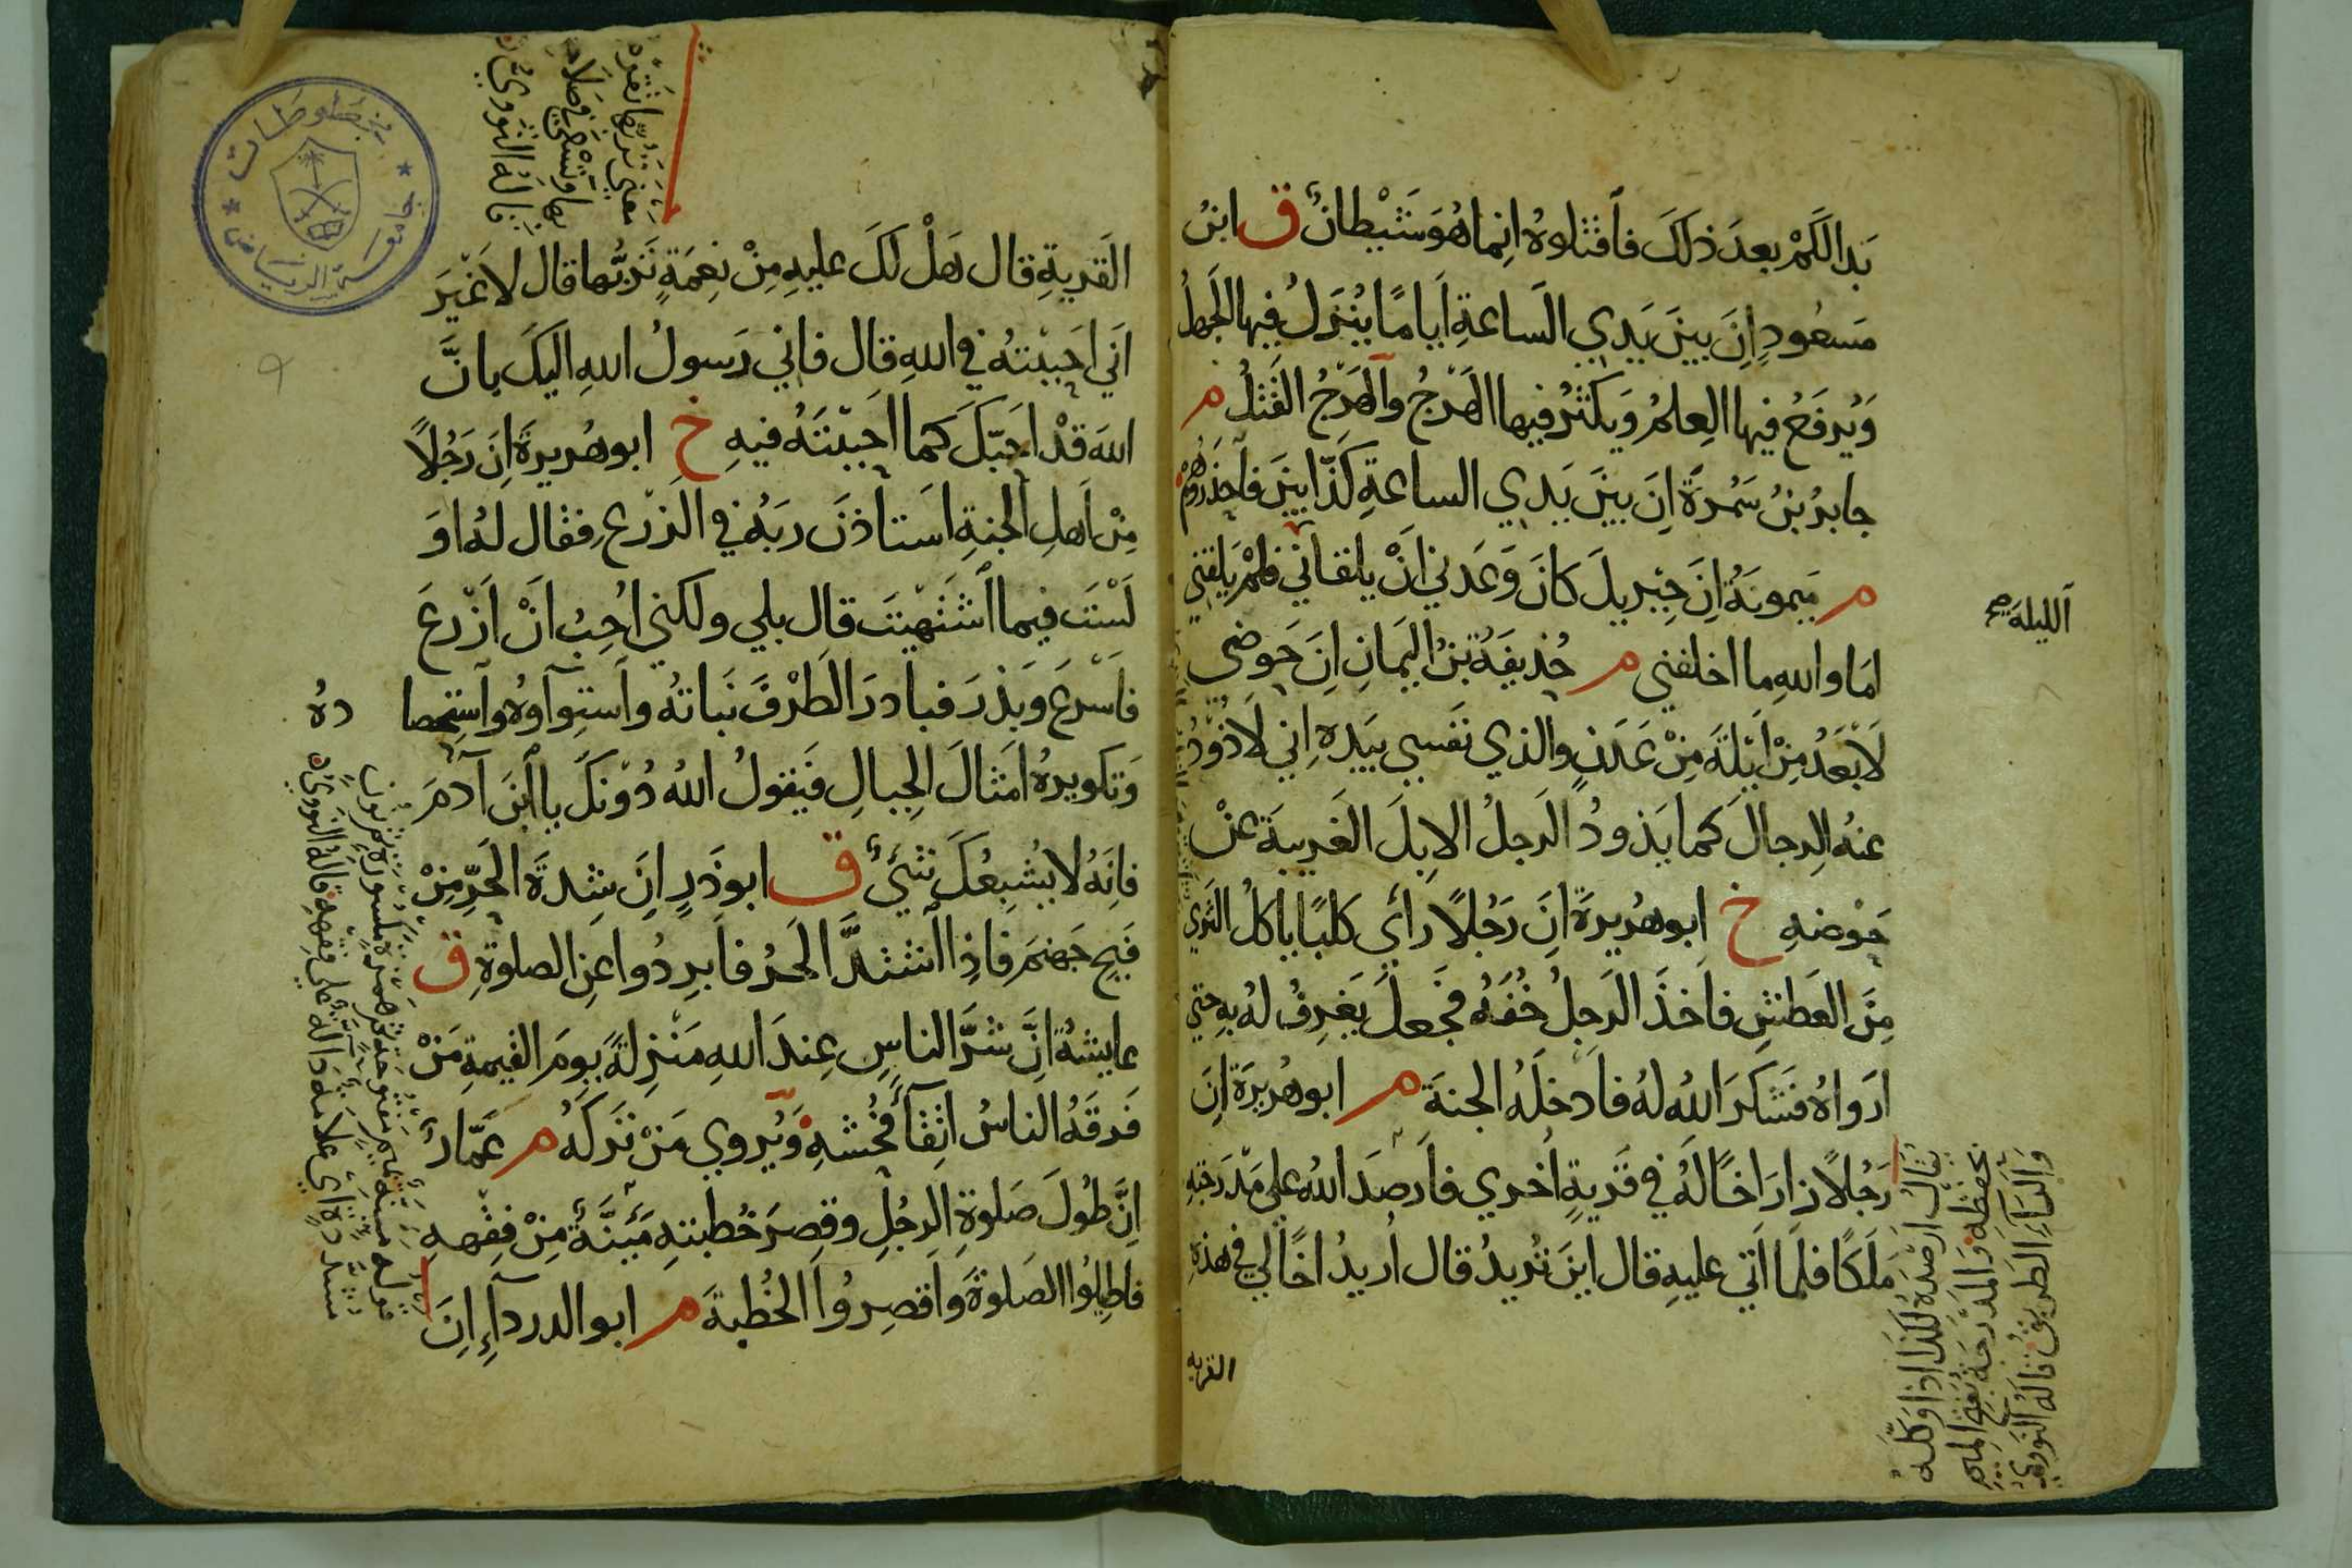 بَدا لَكُمْ بعدَ ذلكَ فاَقتلوهُ اِنما هُوَ شَيْطانٌ ق ابنُ
مَسعُودٍ اِنَ بينَ يَدَيِ الَساعةِ اَيامًا يُنزَلُ فيها الَجهلُ
وَيُرفَعُ فيها العِلمُ وَيَكثرُ فيها الهَرْجُ وَاَلهَرْجُ القَتلُ م
جابرُ بنُ سَمُرةَ اِنَ بينَ يَدي الساعةِ كَذّابينَ فاَحذَروُهُمْ
م مَيمونَةُ اِنَ جِبْريلَ كانَ وَعَدني اَنْ يلقاني فلمْ يَلقني
الليلة صح
اَمَا واللهِ ما اخلفني م حُذيفَةُ بنُ اليَمانِ اِنَ حَوضي
لَاَبْعَدُ مِنْ اَيْلَةَ مِنْ عَدَنٍ والذي نَفسي بيَدهِ اِني لَاَذُوْدُ
عنهُ الرجالَ كما يَذودُ الرَجلُ الاِبلَ الغَريبَةَ عنْ
حَوْضهِ خ ابوهُريرةَ اِنَ رَجُلًا راَي كلبًا ياكلُ الثَري
مِنَ العَطشِ فاَخذَ الرَجلُ خُفَهُ فَجعلَ يَغرِفُ لهُ بهِ حتي
اَرَواهُ فشكرَ اللهُ لهُ فاَدخلَهُ الجنةَ م ابوهُريرَة اِنَ
رَجُلًا زارَ اَخًا لهُ في قَريةٍ اُخري فاَرصَدَ اللهُ علي مَدْرَجتهِ
مَلَكًا فلَما اَتي عليهِ قال اَينَ تُريدُ قال اُريدُ اَخًا لي في هذهِ
القريه
يُقالُ اَرْصَدَهُ لكذا اذا وَكّلَهُ
بحفظِهِ وَالمَدْرَجَةُ بفتحِ الميمِ
وَالراءِ الطريقُ قالهُ النوويُّ
القَريةِ قال هَلْ لكَ عليهِ مِنْ نِعمَةٍ تَرُبُّها قال لا غَيْرَ
اَني اَحبَبْتهُ في اللهِ قال فاني رَسولُ اللهِ اليكَ بانَّ
اللهَ قدْ اَحبّكَ كما اَحببْتَهُ فيهِ خ ابوهُريرةَ اِنَ رَجُلًا
مِنْ اَهلِ الجنةِ استاذنَ ربَهُ في الزَرْعِ فقال لهُ اَوَ
لَسْتَ فيما اشتَهيْتَ قال بلي ولكني اُحِبُ انْ اَزْرعَ
فاَسْرعَ وبَذرَ فبادرَ الطَرْفَ نَباتهُ واستِواوهُ واَستِحصا
دهُ
وَتكويرهُ اَمثالَ الِجبالِ فَيقولُ اللهُ دُوْنكَ يا ابْنَ آدمَ
فانَهُ لا يُشبِعُكَ شئٌ ق ابوذَرٍ اِنَ شِدةَ الحَرِّ مِنْ
فَيحِ جَهنمَ فاذا اَشتدَّ الحَرُ فاَبرِدُوا عَنِ الصلوةِ ق
عايشةُ اِنَّ شرَّ الناسِ عِندَ اللهِ مَنْزِلةً يومَ القيمةِ مَنْ
فَرقَهُ الناسُ اتِقآءَ فُحْشهِ وَيُروي مَنْ تَركَهُ م عَمّارٌ
اِنَّ طُولَ صَلوةِ الرجُلِ وقِصرَ خُطبتهِ مَئِنَّةٌ مِنْ فِقْههِ
فاَطِيلُوا الصَلوةَ واَقصِرُوا الخُطبةَ م ابو الدرداءِ اِنَ
قوله مئنة بميم مفتوحة ثم همزة مكسورة ثم نون
مشددة اي علامة دالة علي فقهه قاله النووي
قاله النووي
مخطوطات
جامعة الرياض